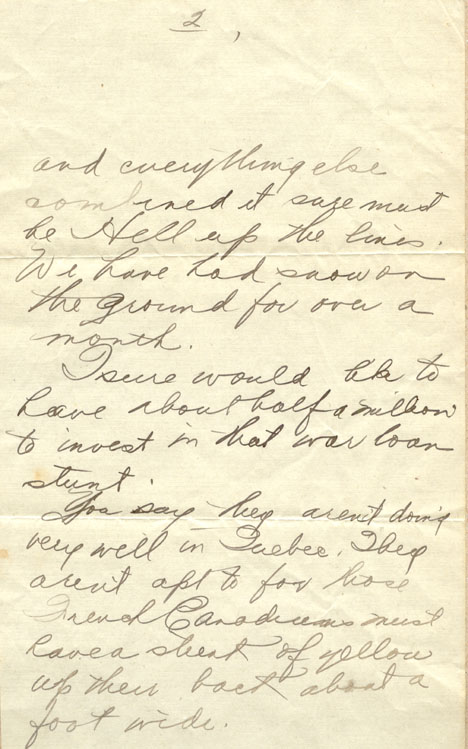 2
and everything else
combined it sure must
be Hell up the lines.
We have had snow on
the ground for over a
month.
I sure would like to
have about half a million
to invest in that war loan
stunt.
You say they aren't doing
very well in Quebec. They
aren't apt to for those
French Canadians must
have a streak of yellow
up their back about a
foot wide.